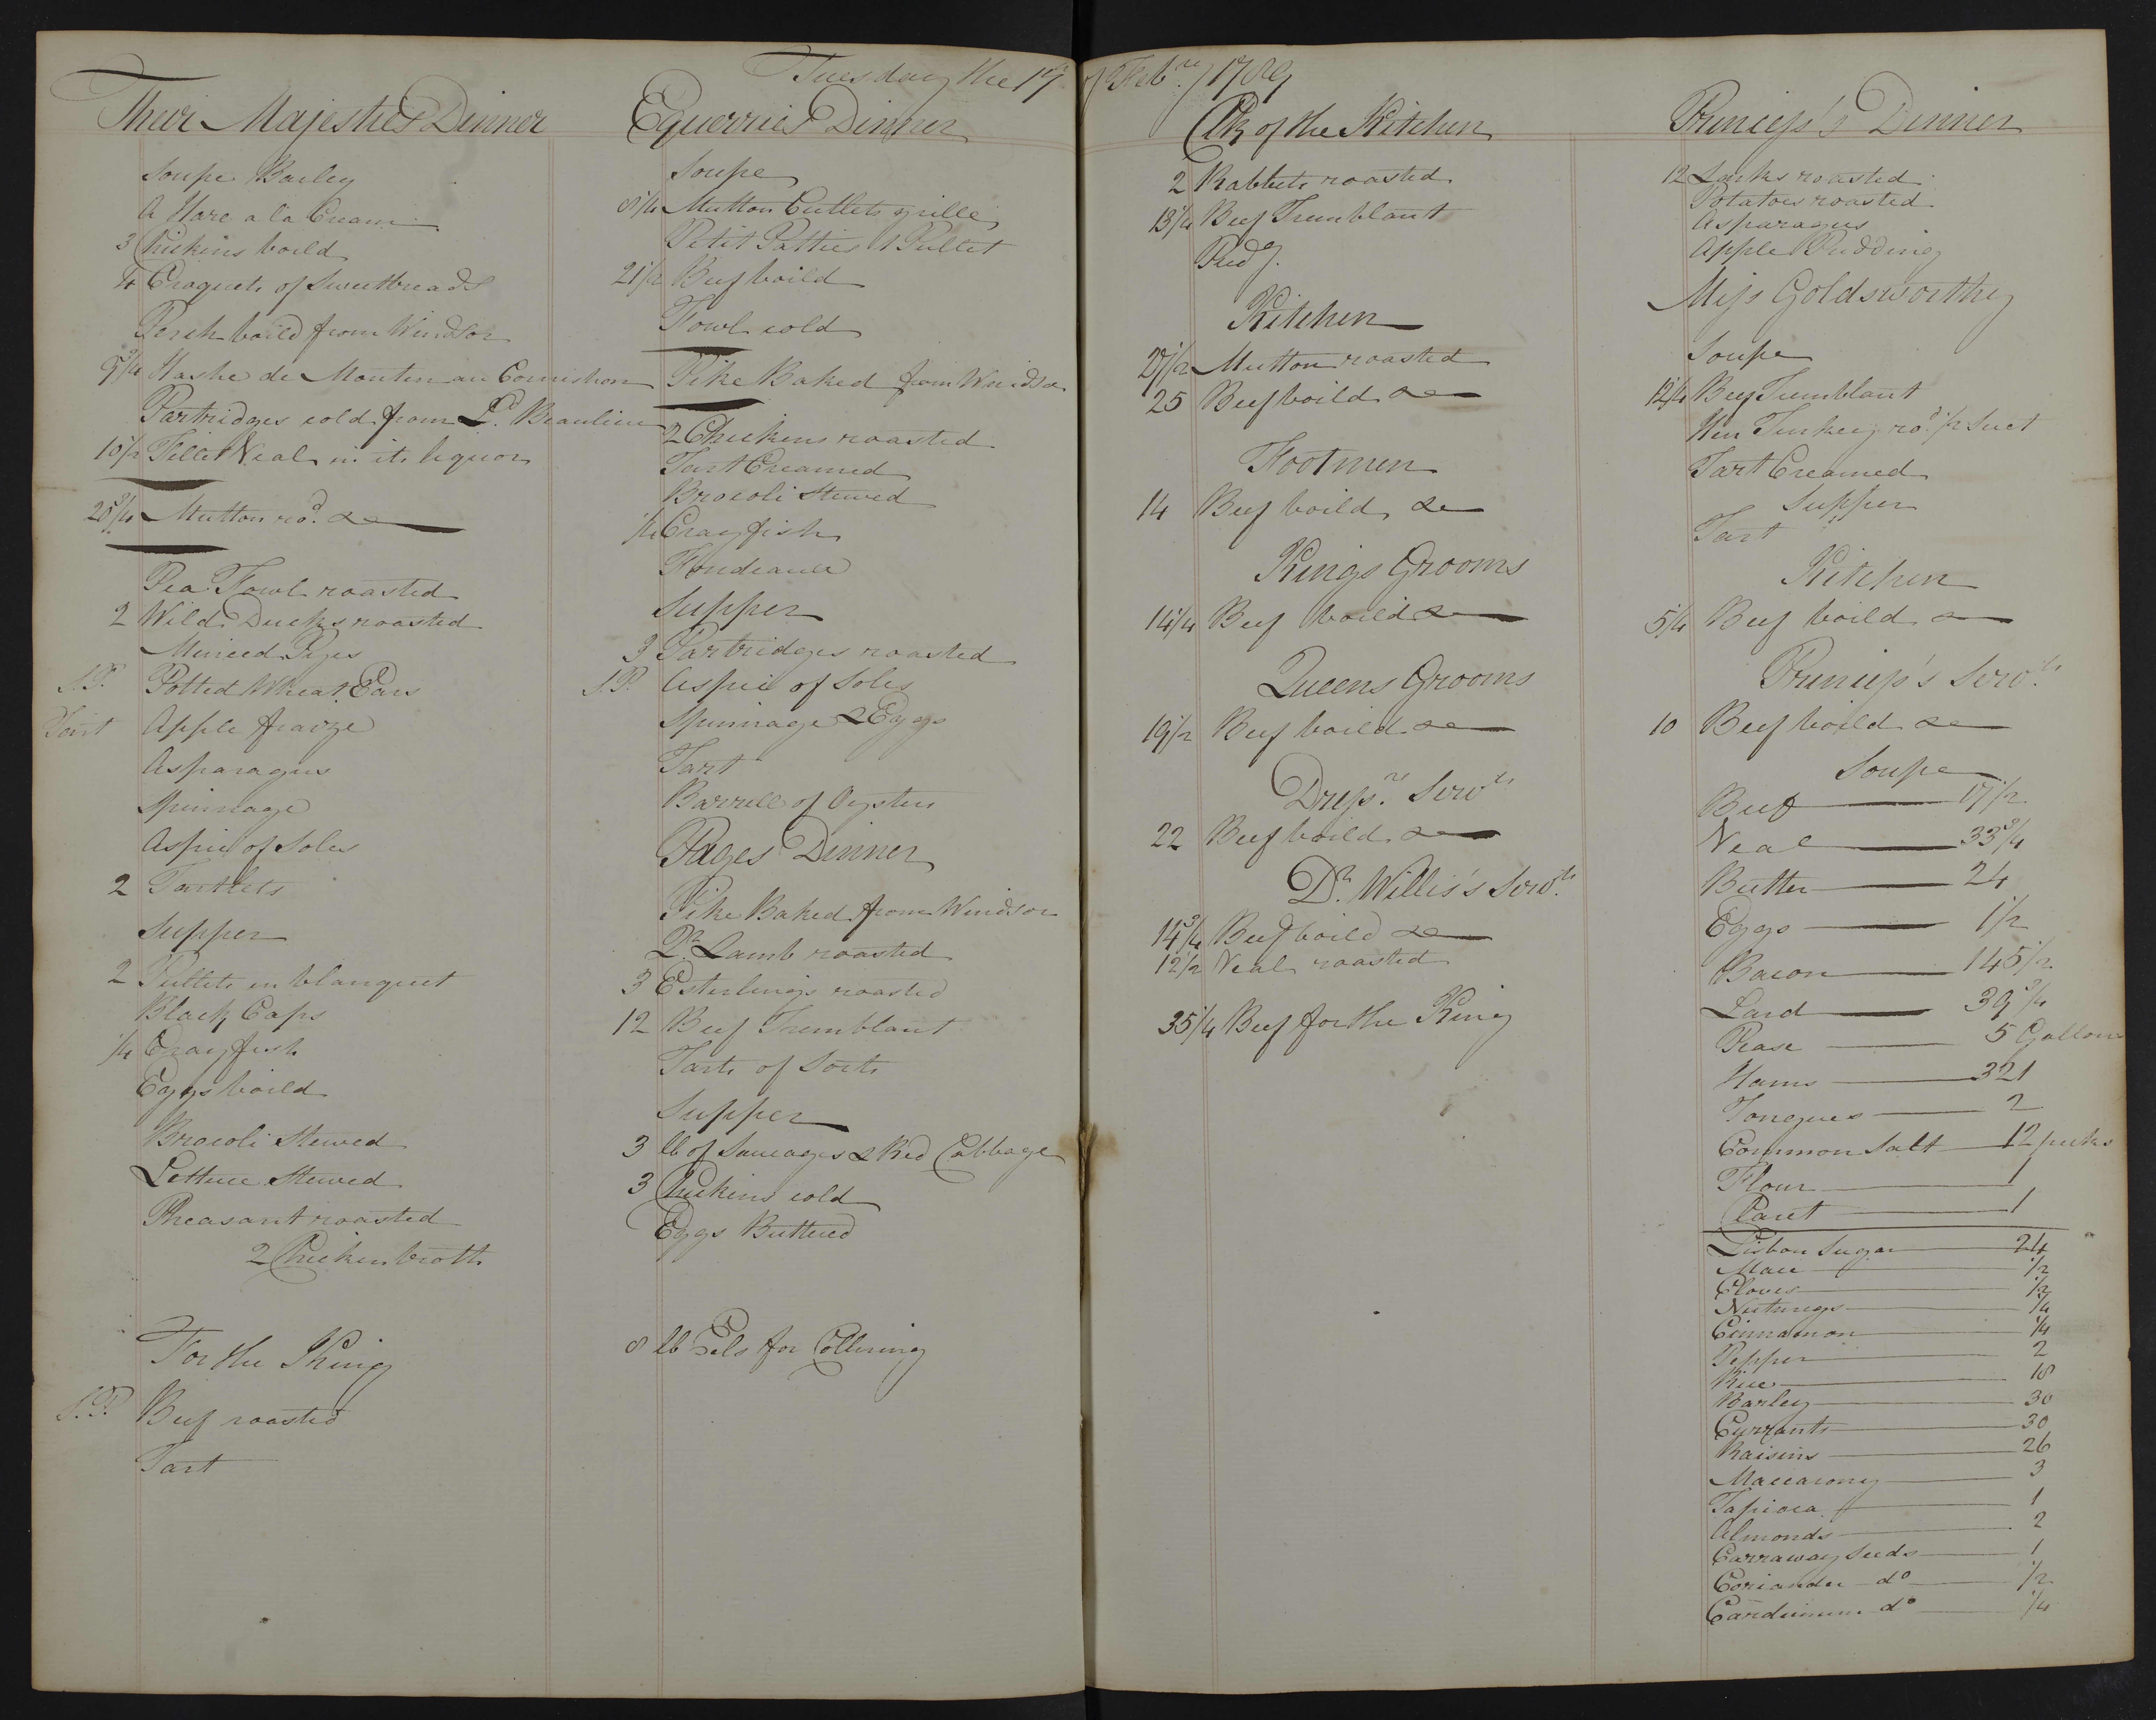 Tuesday the 17th of Febry 1789
Their Majesties Dinner
Soupe Barley
A Hare a la Cream
3 Chickens boild
4 Croquets of Sweetbreads
Perch boild from Windsor
9 3/4 Hashe de Mouton au Cornishon
Partridges cold from Ld. Beaulieu
10 1/2 Fillet Veal in its liquor
20 3/4 Mutton rod. &c
Pea Fowl roasted
2 Wild Ducks roasted
Minced Pyes
S.P. Potted Wheat Ears
Tart Apple fraize
Asparagus
Spinnage
Aspic of Soles
2 Tartlets
Supper
2 Pullets en blanquet
Black Caps
1/4 Crayfish
Eggs boild
Brocoli Stewed
Lettuce Stewed
Pheasant roasted
2 Chicken broth
For the King
S.P. Beef roasted
Tart
Equerries Dinner
Soupe
8 1/4 Mutton Cutlets grille
Petit Patties 1 Pullet
21 1/2 Beef boild
Fowl cold
Pike Baked from Windsor
2 Chickens roasted
Tart Creamed
Brocoli Stewed
1/4 Crayfish
Fondeaux
Supper
3 Partridges roasted
S.P. Aspic of Soles
Spinnage & Eggs
Tart
Barrell of Oysters
Pages Dinner
Pike Baked from Windsor
Qr. Lamb roasted
3 Esterlings roasted
12 Beef Tremblant
Tarts of Sorts
Supper
3 lb of Saucages & Red Cabbage
3 Chickens cold
Eggs Buttered
8 lb Eels for Collering
Clk of the Kitchen
2 Rabbits roasted
13 1/4 Beef Tremblant
Pudg.
Kitchen
27 1/2 Mutton roasted
25 Beef boild &c
Footmen
14 Beef boild &c
Kings Grooms
14 1/4 Beef boild &c
Queens Grooms
19 1/2 Beef boild &c
Dressrs. Servts
22 Beef boild &c
Dr. Willis's Servts
14 3/4 Beef boild &c
12 1/2 Veal roasted
35 1/4 Beef for the King
Princess's Dinner
12 Larks roasted
Potatoes roasted
Asparagus
Apple Pudding
Miss Goldsworthy
Soupe
12 1/4 Beef Tremblant
Hen Turkey rod. 1/2 Suet
Tart Creamed
Supper
Tart
Kitchen
5 1/4 Beef boild &c
Princess's Servts
10 Beef boild &c
Soupe
Beef 17 1/2
Veal 33 3/4
Butter 24
Eggs 1 1/2
Bacon 145 1/2
Lard 39 3/4
Pease 5 Gallons
Hams 321
Tongues 2
Common Salt 12 pecks
Flour 1
1
Lisbon Sugar 24
Mace 1/2
Cloves 1/2
Nutmegs 1/4
Cinnamon 1/4
Pepper 2
Rice 18
Barley 30
Currants 30
Raisins 26
Maccarony 3
Tapioca 1
Almonds 2
Carraway Seeds 1
Coriander do 1/2
Cardimum do 1/4